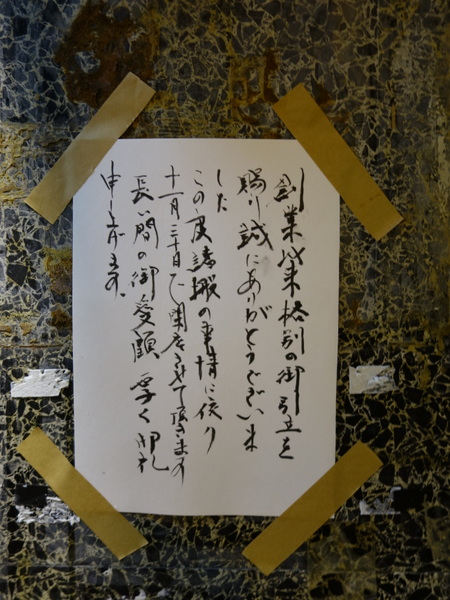 創業以来格別の御引立を
賜り誠にありがとうございま
した
この度諸般の事情に依り
十一月三十日で閉店させて頂きます
長い間の御愛顧厚く御礼
申します。